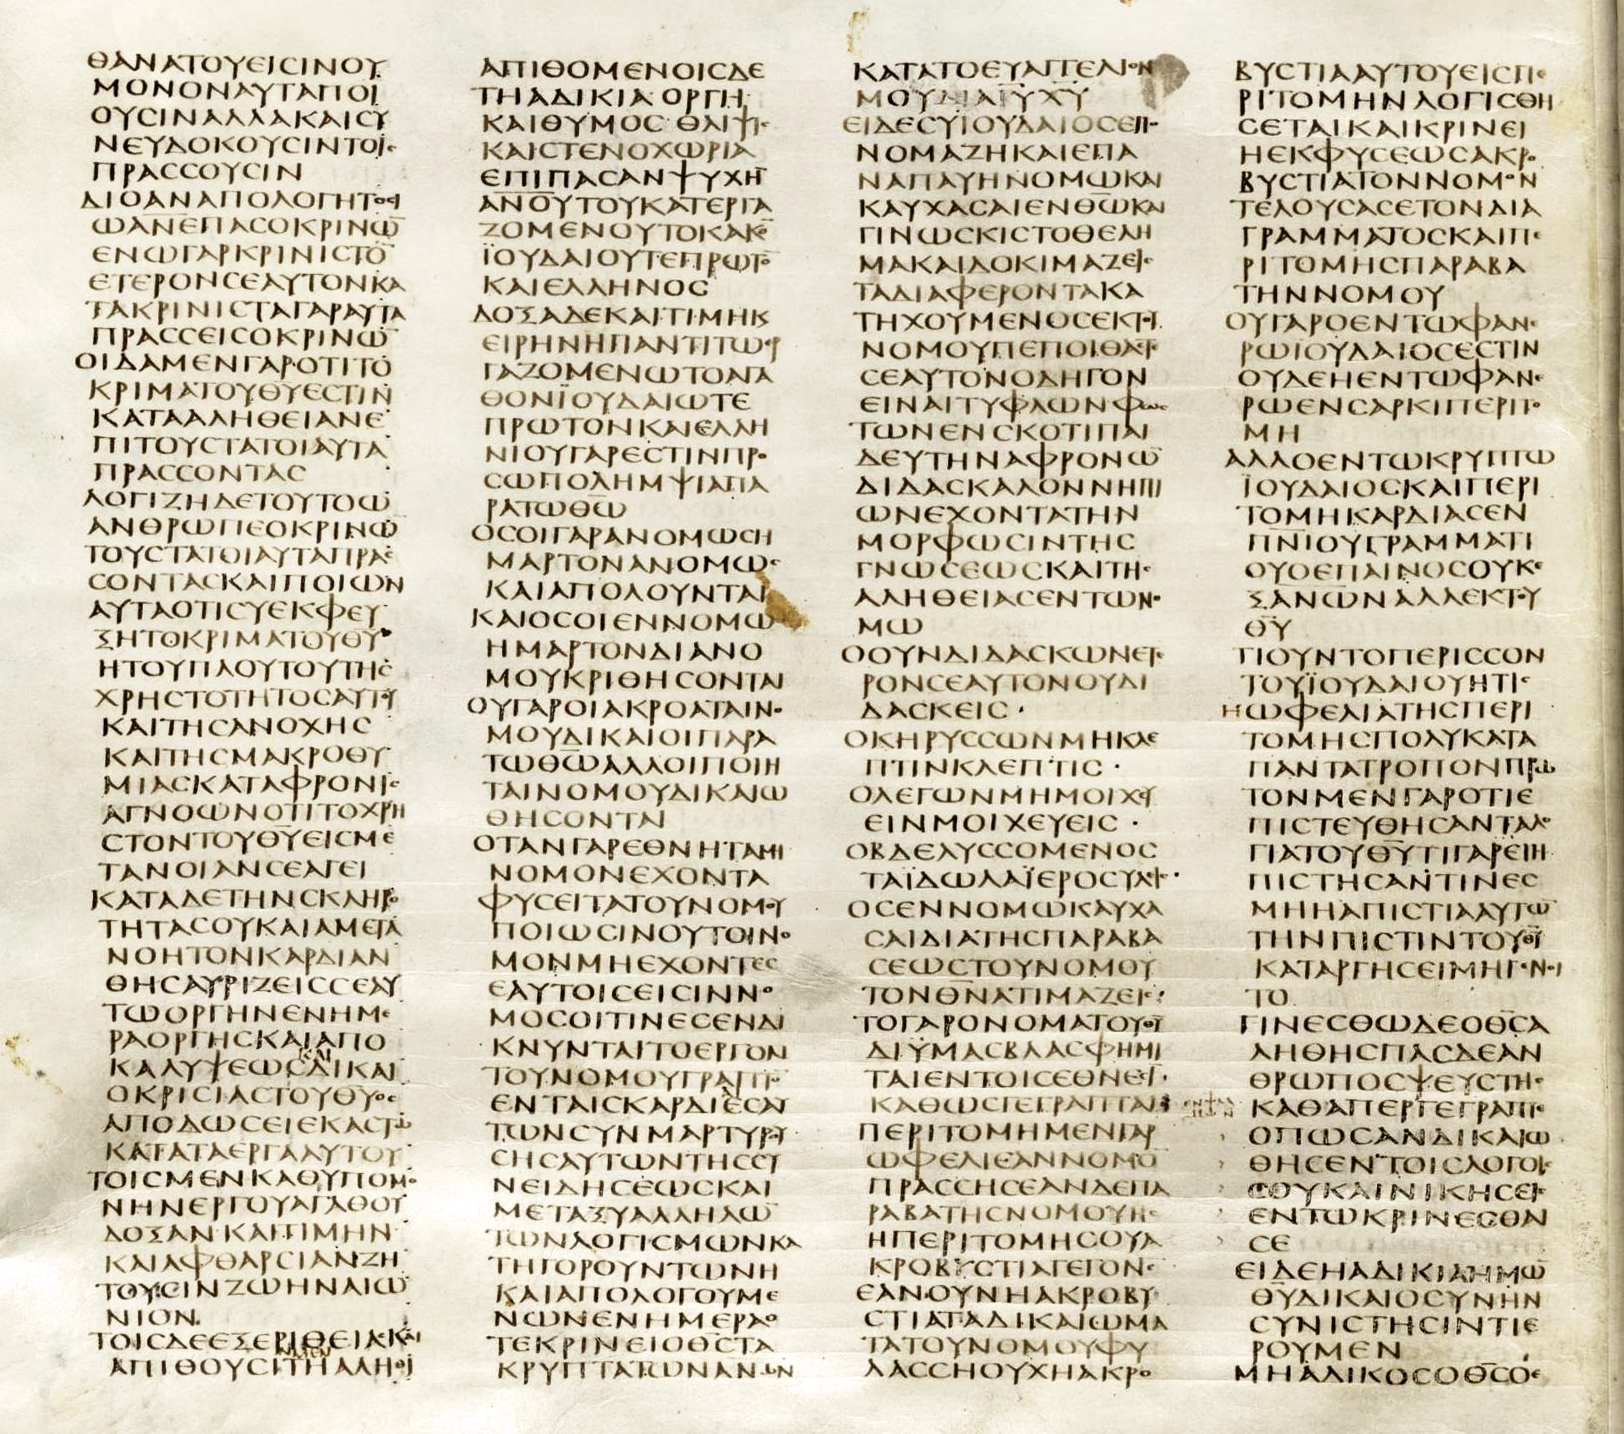 ΘΑΝΑΤΟΥΕΙCΙΝΟΥ
ΜΟΝΟΝΑΥΤΑΠΟΙ
ΟΥCΙΝΑΛΛΑΚΑΙCΥ
ΝΕΥΔΟΚΟΥCΙΝΤΟΙC
ΠΡΑCCΟΥCΙΝ
ΔΙΟΑΝΑΠΟΛΟΓΗΤΟCΙ
ΩΑΝΕΠΑCΟΚΡΙΝΩ̅
ΕΝΩΓΑΡΚΡΙΝΙCΤΟ̅
ΕΤΕΡΟΝCΕΑΥΤΟΝΚΑ
ΤΑΚΡΙΝΙCΤΑΓΑΡΑΥΤΑ
ΠΡΑCCΕΙCΟΚΡΙΝΩ̅
ΟΙΔΑΜΕΝΓΑΡΟΤΙΤΟ
ΚΡΙΜΑΤΟΥΘ̅Υ̅ΕCΤΙΝ
ΚΑΤΑΑΛΗΘΕΙΑΝΕ
ΠΙΤΟΥCΤΑΤΟΙΑΥΤΑ
ΠΡΑCCΟΝΤΑC
ΛΟΓΙΖΗΔΕΤΟΥΤΟΩ
ΑΝΘΡΩΠΕΟΚΡΙΝΩ̅
ΤΟΥCΤΑΤΟΙΑΥΤΑΠΡΑC
CΟΝΤΑCΚΑΙΠΟΙΩΝ
ΑΥΤΑΟΤΙCΥΕΚΦΕΥ
ΞΗΤΟΚΡΙΜΑΤΟΥΘ̅Υ̅
ΗΤΟΥΠΛΟΥΤΟΥΤΗC
ΧΡΗCΤΟΤΗΤΟCΑΥΤΟΥ
ΚΑΙΤΗCΑΝΟΧΗC
ΚΑΙΤΗCΜΑΚΡΟΘΥ
ΜΙΑCΚΑΤΑΦΡΟΝΙC
ΑΓΝΟΩΝΟΤΙΤΟΧΡΗ
CΤΟΝΤΟΥΘ̅Υ̅ΕΙCΜΕ
ΤΑΝΟΙΑΝCΕΑΓΕΙ
ΚΑΤΑΔΕΤΗΝCΚΛΗΡΟ
ΤΗΤΑCΟΥΚΑΙΑΜΕΤΑ
ΝΟΗΤΟΝΚΑΡΔΙΑΝ
ΘΗCΑΥΡΙΖΕΙCCΕΑΥ
ΤΩΟΡΓΗΝΕΝΗΜΕ
ΡΑΟΡΓΗCΚΑΙΑΠΟ
ΚΑΛΥΨΕΩCΚΑΙΔΙΚΑΙ
ΟΚΡΙCΙΑCΤΟΥΘ̅Υ̅ΟC
ΑΠΟΔΩCΕΙΕΚΑCΤΩ
ΚΑΤΑΤΑΕΡΓΑΑΥΤΟΥ
ΤΟΙCΜΕΝΚΑΘΥΠΟΜΟ
ΝΗΝΕΡΓΟΥΑΓΑΘΟΥ
ΔΟΞΑΝΚΑΙΤΙΜΗΝ
ΚΑΙΑΦΘΑΡCΙΑΝΖΗ
ΤΟΥCΙΝΖΩΗΝΑΙΩ
ΝΙΟΝ
ΤΟΙCΔΕΕΞΕΡΙΘΕΙΑCΚΑΙ
ΑΠΙΘΟΥCΙΤΗΑΛΗΘΙ
ΑΠΙΘΟΜΕΝΟΙCΔΕ
ΤΗΑΔΙΚΙΑΟΡΓΗ
ΚΑΙΘΥΜΟCΘΛΙΨΙC
ΚΑΙCΤΕΝΟΧΩΡΙΑ
ΕΠΙΠΑCΑΝΨΥΧΗ̅
Α̅Ν̅Ο̅Υ̅ΤΟΥΚΑΤΕΡΓΑ
ΖΟΜΕΝΟΥΤΟΚΑΚΟ̅
ΪΟΥΔΑΙΟΥΤΕΠΡΩΤΟ̅
ΚΑΙΕΛΛΗΝΟC
ΔΟΞΑΔΕΚΑΙΤΙΜΗΚ
ΕΙΡΗΝΗΠΑΝΤΙΤΩΕΡ
ΓΑΖΟΜΕΝΩΤΟΑΓΑ
ΘΟΝΪΟΥΔΑΙΩΤΕ
ΠΡΩΤΟΝΚΑΙΕΛΛΗ
ΝΙΟΥΓΑΡΕCΤΙΝΠΡΟ
CΩΠΟΛΗΜΨΙΑΠΑ
ΡΑΤΩΘ̅Ω̅
ΟCΟΙΓΑΡΑΝΟΜΩCΗ
ΜΑΡΤΟΝΑΝΟΜΩC
ΚΑΙΑΠΟΛΟΥΝΤΑΙ
ΚΑΙΟCΟΙΕΝΝΟΜΩ
ΗΜΑΡΤΟΝΔΙΑΝΟ
ΜΟΥΚΡΙΘΗCΟΝΤΑΙ
ΟΥΓΑΡΟΙΑΚΡΟΑΤΑΙΝΟ
ΜΟΥΔΙΚΑΙΟΙΠΑΡΑ
ΤΩΘ̅Ω̅ΑΛΛΟΙΠΟΙΗ
ΤΑΙΝΟΜΟΥΔΙΚΑΙΩ
ΘΗCΟΝΤΑΙ
ΟΤΑΝΓΑΡΕΘΝΗΤΑΜΗ
ΝΟΜΟΝΕΧΟΝΤΑ
ΦΥCΕΙΤΑΤΟΥΝΟΜΟΥ
ΠΟΙΩCΙΝΟΥΤΟΙΝΟ
ΜΟΝΜΗΕΧΟΝΤΕC
ΕΑΥΤΟΙCΕΙCΙΝΝΟ
ΜΟCΟΙΤΙΝΕCΕΝΔΙ
ΚΝΥΝΤΑΙΤΟΕΡΓΟΝ
ΤΟΥΝΟΜΟΥΓΡΑΠΤΟ
ΕΝΤΑΙCΚΑΡΔΙΕCΑΥ
ΤΩΝCΥΝΜΑΡΤΥΡΟΥ
CΗCΑΥΤΩΝΤΗCCΥ
ΝΕΙΔΗCΕΩCΚΑΙ
ΜΕΤΑΞΥΑΛΛΗΛΩ̅
ΤΩΝΛΟΓΙCΜΩΝΚΑ
ΤΗΓΟΡΟΥΝΤΩΝΗ
ΚΑΙΑΠΟΛΟΓΟΥΜΕ
ΝΩΝΕΝΗΜΕΡΑΟ
ΤΕΚΡΙΝΕΙΟΘ̅C̅ΤΑ
ΚΡΥΠΤΑΤΩΝΑΝΩΝ
ΚΑΤΑΤΟΕΥΑΓΓΕΛΙΟΝ
ΜΟΥΔΙΑΙ̅Υ̅Χ̅Υ̅
ΕΙΔΕCΥΙΟΥΔΑΙΟCΕΠΟ
ΝΟΜΑΖΗΚΑΙΕΠΑ
ΝΑΠΑΥΗΝΟΜΩΚΑΙ
ΚΑΥΧΑCΑΙΕΝΘ̅Ω̅ΚΑΙ
ΓΙΝΩCΚΙCΤΟΘΕΛΗ
ΜΑΚΑΙΔΟΚΙΜΑΖΕΙC
ΤΑΔΙΑΦΕΡΟΝΤΑΚΑ
ΤΗΧΟΥΜΕΝΟCΕΚΤΟΥ
ΝΟΜΟΥΠΕΠΟΙΘΑC
CΕΑΥΤΟΝΟΔΗΓΟΝ
ΕΙΝΑΙΤΥΦΛΩΝΦΩC
ΤΩΝΕΝCΚΟΤΙΠΑΙ
ΔΕΥΤΗΝΑΦΡΟΝΩ̅
ΔΙΔΑCΚΑΛΟΝΝΗΠΙ
ΩΝΕΧΟΝΤΑΤΗΝ
ΜΟΡΦΩCΙΝΤΗC
ΓΝΩCΕΩCΚΑΙΤΗC
ΑΛΗΘΕΙΑCΕΝΤΩΝΟ
ΜΩ
ΟΟΥΝΔΙΔΑCΚΩΝΕΤΕ
ΡΟΝCΕΑΥΤΟΝΟΥΔΙ
ΔΑCΚΕΙC·
ΟΚΗΡΥCCΩΝΜΗΚΛΕ
ΠΤΙΝΚΛΕΠΤΙC·
ΟΛΕΓΩΝΜΗΜΟΙΧΕΥ
ΕΙΝΜΟΙΧΕΥΕΙC·
ΟΒΔΕΛΥCCΟΜΕΝΟC
ΤΑΪΔΩΛΑΪΕΡΟCΥΛΙC·
ΟCΕΝΝΟΜΩΚΑΥΧΑ
CΑΙΔΙΑΤΗCΠΑΡΑΒΑ
CΕΩCΤΟΥΝΟΜΟΥ
ΤΟΝΘ̅Ν̅ΑΤΙΜΑΖΕΙC
ΤΟΓΑΡΟΝΟΜΑΤΟΥΘ̅Υ̅
ΔΙΥΜΑCΒΛΑCΦΗΜΙ
ΤΑΙΕΝΤΟΙCΕΘΝΕCΙ
ΚΑΘΩCΓΕΓΡΑΠΤΑΙ
ΠΕΡΙΤΟΜΗΜΕΝΓΑΡ
ΩΦΕΛΙΕΑΝΝΟΜΟ̅
ΠΡΑCCΗCΕΑΝΔΕΠΑ
ΡΑΒΑΤΗCΝΟΜΟΥΗC
ΗΠΕΡΙΤΟΜΗCΟΥΑ
ΚΡΟΒΥCΤΙΑΓΕΓΟΝΕ
ΕΑΝΟΥΝΗΑΚΡΟΒΥ
CΤΙΑΤΑΔΙΚΑΙΩΜΑ
ΤΑΤΟΥΝΟΜΟΥΦΥ
ΛΑCCΗΟΥΧΗΑΚΡΟ
ΒΥCΤΙΑΑΥΤΟΥΕΙCΠΕ
ΡΙΤΟΜΗΝΛΟΓΙCΘΗ
CΕΤΑΙΚΑΙΚΡΙΝΕΙ
ΗΕΚΦΥCΕΩCΑΚΡΟ
ΒΥCΤΙΑΤΟΝΝΟΜΟΝ
ΤΕΛΟΥCΑCΕΤΟΝΔΙΑ
ΓΡΑΜΜΑΤΟCΚΑΙΠΕ
ΡΙΤΟΜΗCΠΑΡΑΒΑ
ΤΗΝΝΟΜΟΥ
ΟΥΓΑΡΟΕΝΤΩΦΑΝΕ
ΡΩΙΟΥΔΑΙΟCΕCΤΙΝ
ΟΥΔΕΗΕΝΤΩΦΑΝΕ
ΡΩΕΝCΑΡΚΙΠΕΡΙΤΟ
ΜΗ
ΑΛΛΟΕΝΤΩΚΡΥΠΤΩ
ΪΟΥΔΑΙΟCΚΑΙΠΕΡΙ
ΤΟΜΗΚΑΡΔΙΑCΕΝ
Π̅Ν̅Ι̅ΟΥΓΡΑΜΜΑΤΙ
ΟΥΟΕΠΑΙΝΟCΟΥΚΕ
ΞΑΝΩΝΑΛΛΕΚΤΟΥ
Θ̅Υ̅
ΤΙΟΥΝΤΟΠΕΡΙCCΟΝ
ΤΟΥΪΟΥΔΑΙΟΥΗΤΙC
ΗΩΦΕΛΙΑΤΗCΠΕΡΙ
ΤΟΜΗCΠΟΛΥΚΑΤΑ
ΠΑΝΤΑΤΡΟΠΟΝΠΡΩ
ΤΟΝΜΕΝΓΑΡΟΤΙΕ
ΠΙCΤΕΥΘΗCΑΝΤΑΛΟ
ΓΙΑΤΟΥΘ̅Υ̅ΤΙΓΑΡΕΙΗ
ΠΙCΤΗCΑΝΤΙΝΕC
ΜΗΗΑΠΙCΤΙΑΑΥΤΩ̅
ΤΗΝΠΙCΤΙΝΤΟΥΘ̅Υ̅
ΚΑΤΑΡΓΗCΕΙΜΗΓΕΝΟΙ
ΤΟ
ΓΙΝΕCΘΩΔΕΟΘ̅C̅Α
ΛΗΘΗCΠΑCΔΕΑΝ
ΘΡΩΠΟCΨΕΥCΤΗC
ΚΑΘΑΠΕΡΓΕΓΡΑΠΤΑΙ
ΟΠΩCΑΝΔΙΚΑΙΩ
ΘΗCΕΝΤΟΙCΛΟΓΟΙC
CΟΥΚΑΙΝΙΚΗCΕΙC
ΕΝΤΩΚΡΙΝΕCΘΑΙ
CΕ
ΕΙΔΕΗΑΔΙΚΙΑΗΜΩ̅
Θ̅Υ̅ΔΙΚΑΙΟCΥΝΗΝ
CΥΝΙCΤΗCΙΝΤΙΕ
ΡΟΥΜΕΝ
ΜΗΑΔΙΚΟCΟΘ̅C̅Ο